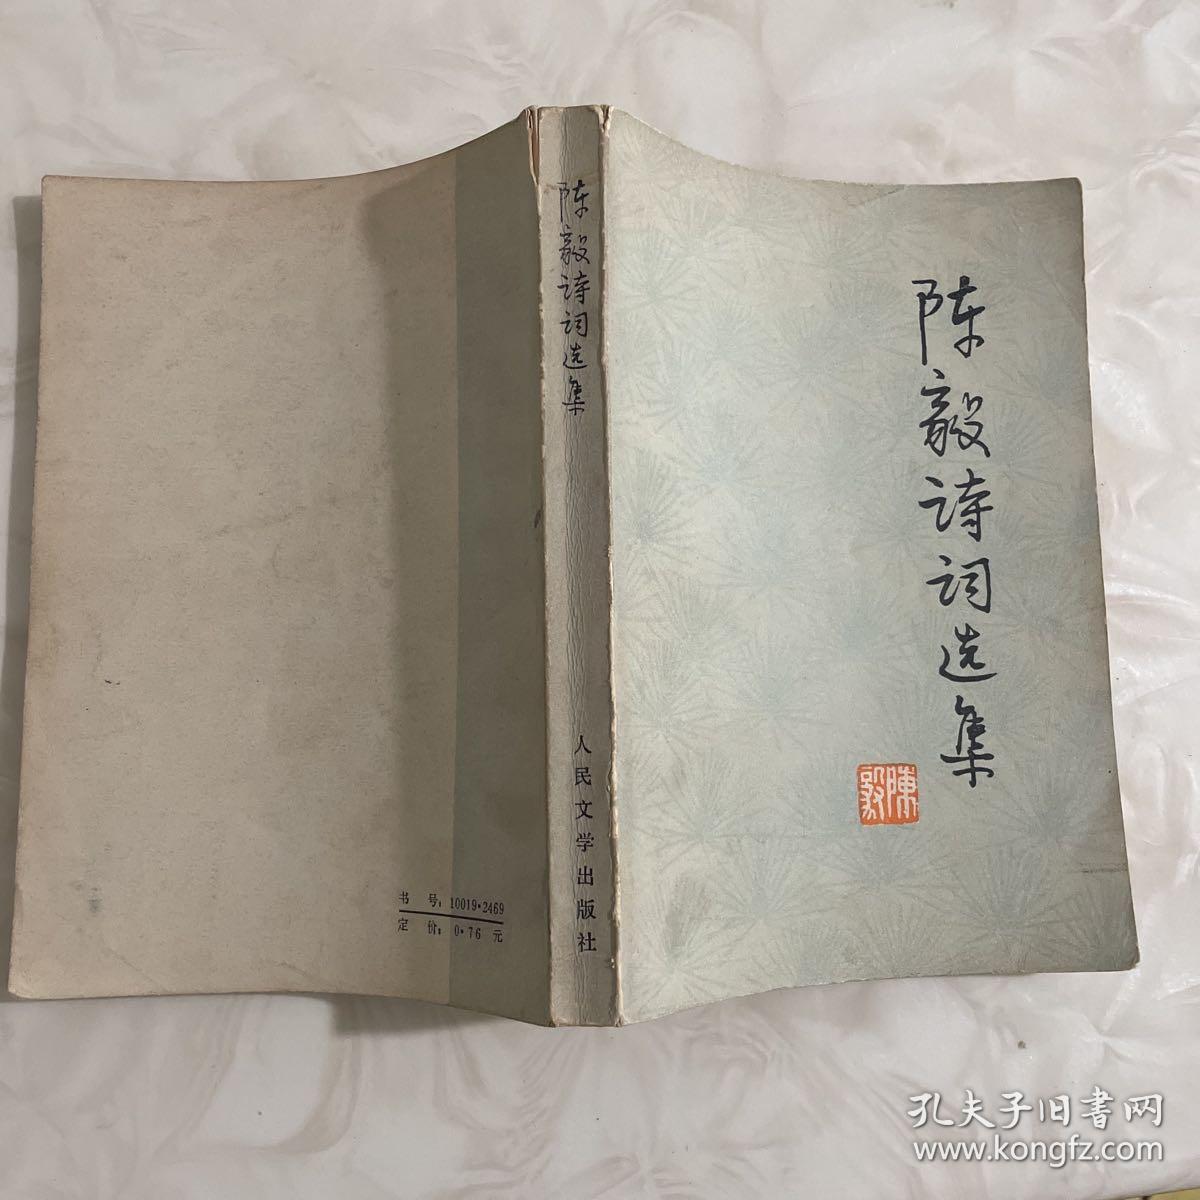 陈毅诗词选集
陈毅
陈毅诗词选集
人民文学出版社
书 号：10019·2469
定 价：0·76 元
孔夫子旧书网
www.kongfz.com